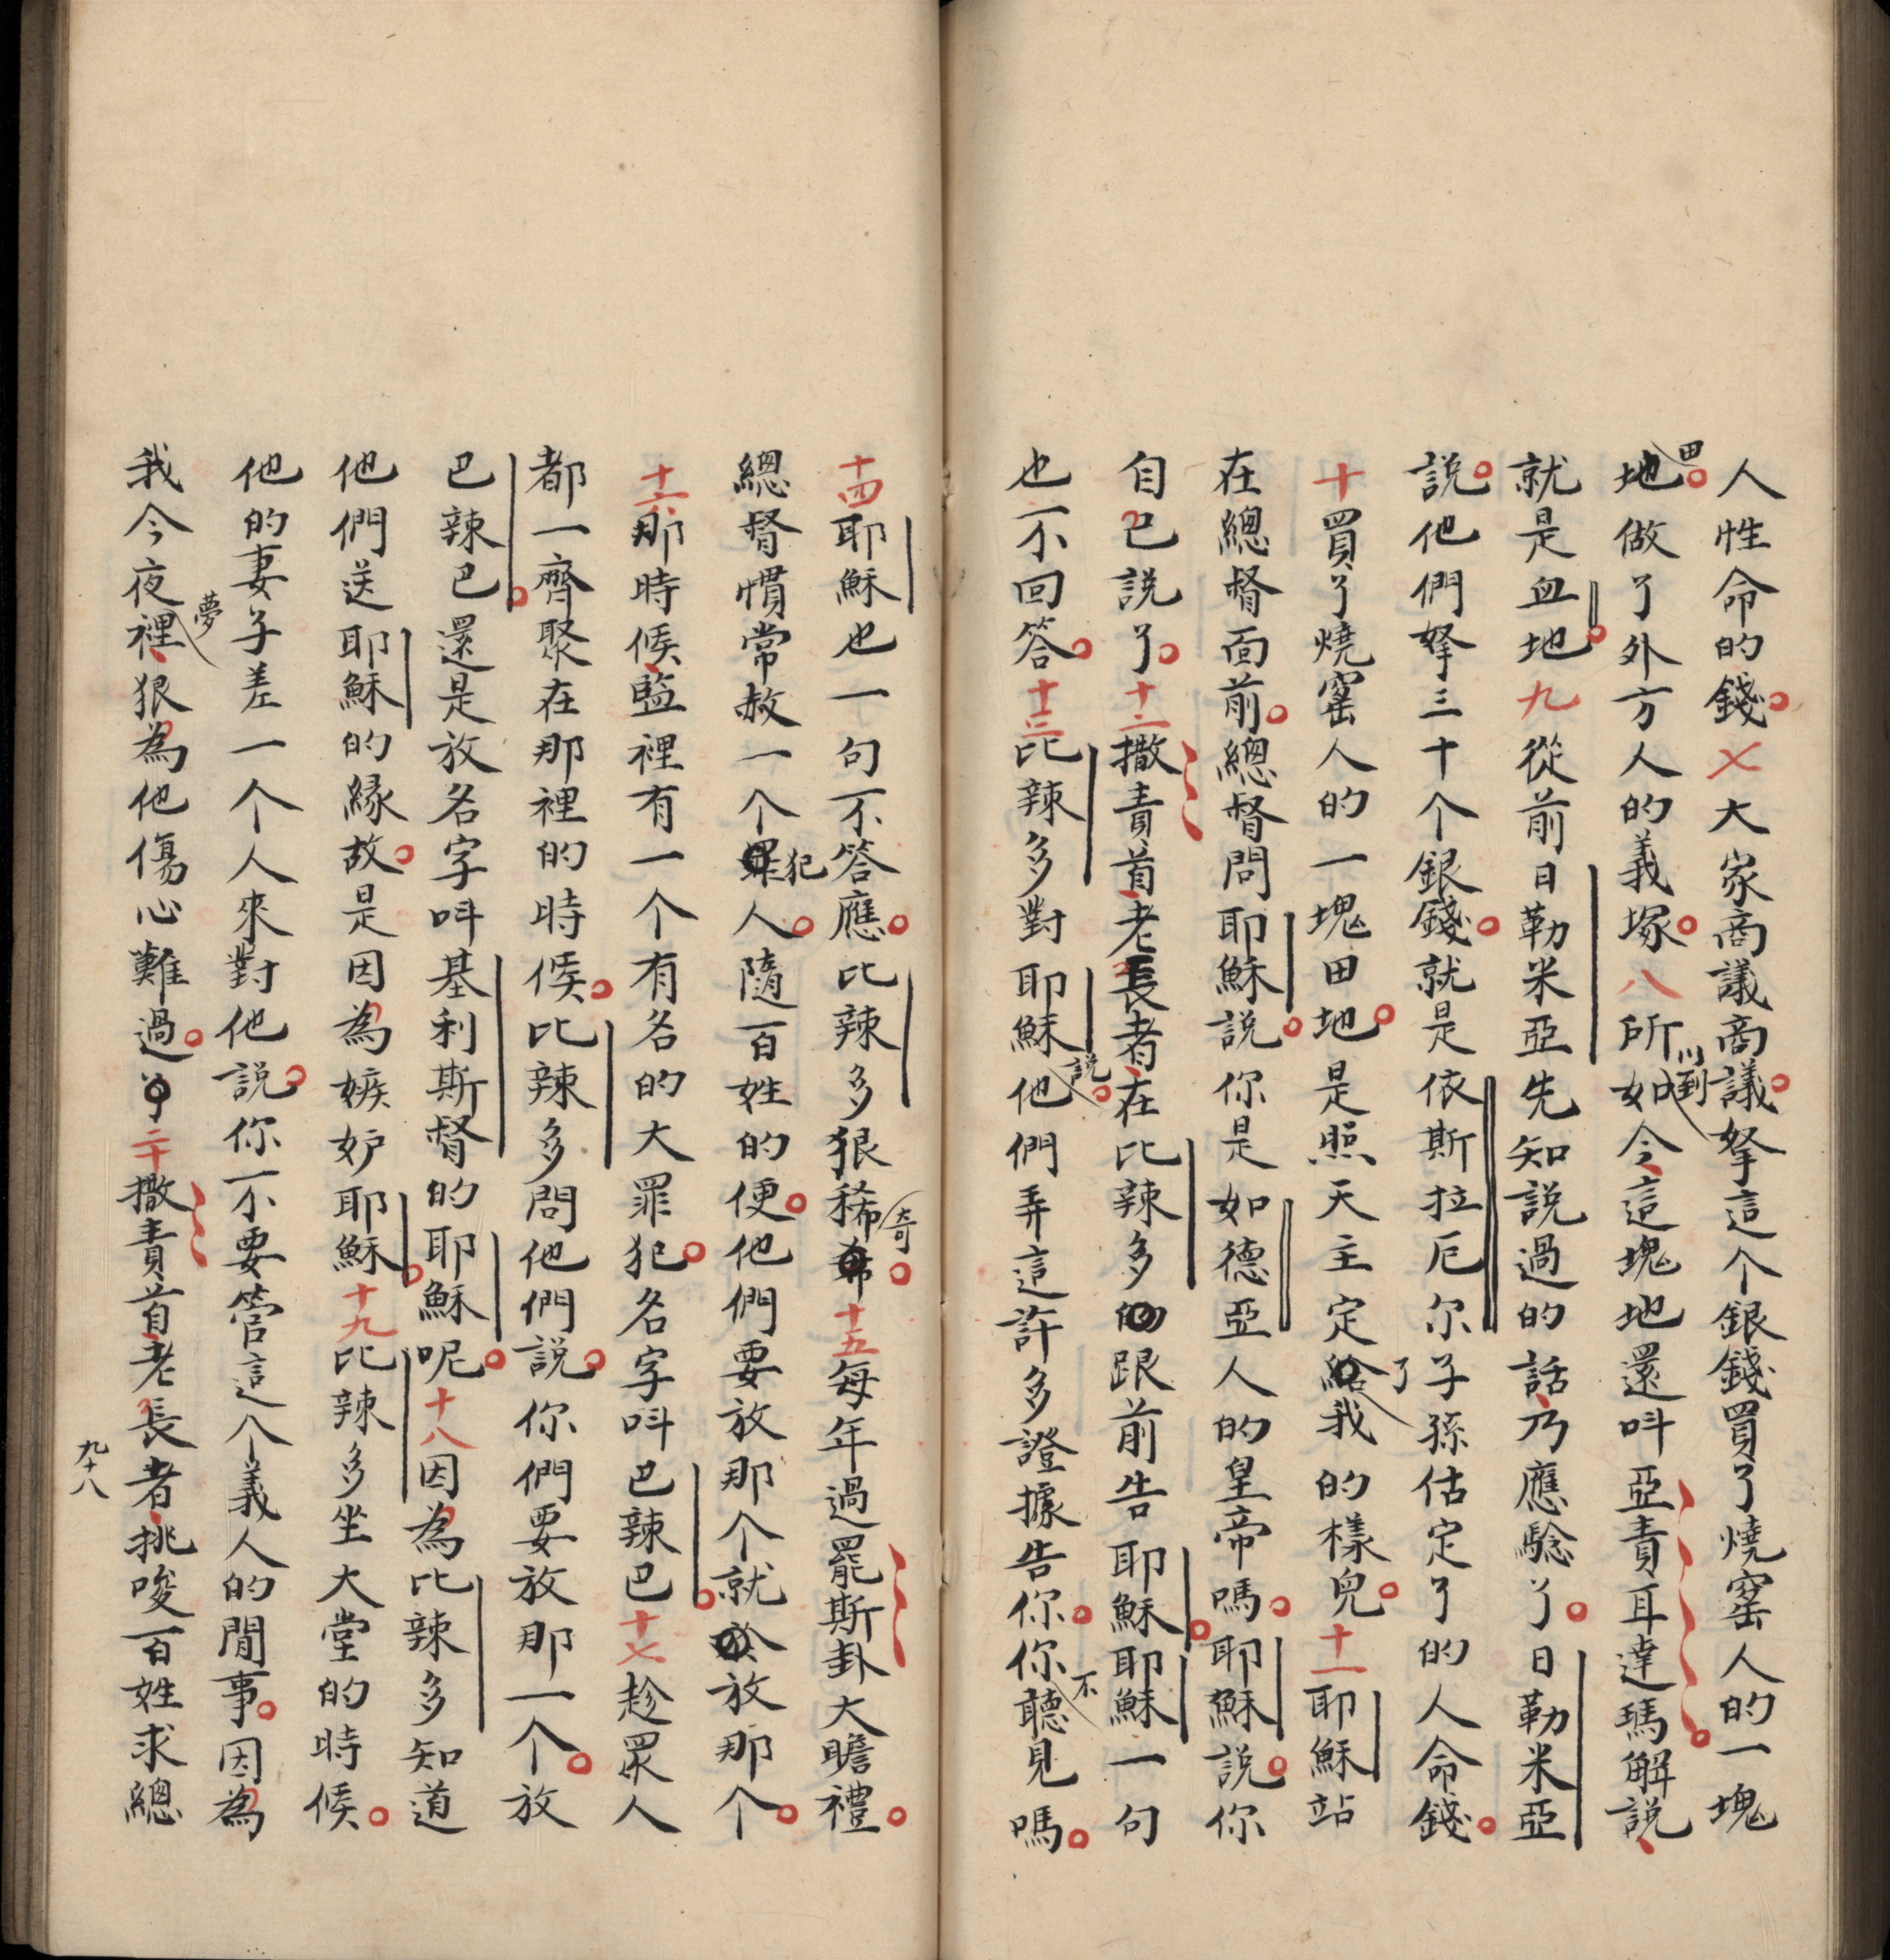 人性命的錢。七大家商議商議。拏這个銀錢買了燒窰人的一塊
田地。做了外方人的義塚。八所以到如今、這塊地還呌亞責耳達瑪。解說、
就是血地。九從前日勒米亞先知說過的話、乃應騐了。日勒米亞
說。他們拏三十个銀錢。就是依斯拉厄尔子孫估定了的人命錢。
十買了燒窰人的一塊田地。是照天主定了我的樣兒。十一耶穌站
在總督面前。總督問耶穌說。你是如德亞人的皇帝嗎。耶穌說。你
自己說了。十二撒責首、老長者、在比辣多跟前告耶穌。耶穌一句
也不回答。十三比辣多對耶穌說。他們弄這許多證據告你。你不聽見嗎。
十四耶穌也一句不答應。比辣多狠稀奇。十五每年過罷斯卦大瞻禮。
總督慣常赦一个犯人。隨百姓的便。他們要放那个、就放那个。
十六那時候、監裡有一个有名的大罪犯。名字呌巴辣巴。十七趁眾人
都一齊聚在那裡的時候。比辣多問他們說。你們要放那一个。放
巴辣巴。還是放名字呌基利斯督的耶穌呢。十八因為比辣多知道
他們送耶穌的縁故。是因為嫉妒耶穌。十九比辣多坐大堂的時候。
他的妻子差一个人來對他說。你不要管這个義人的閒事。因為
我今夜夢裡、狠為他傷心難過。二十撒責首、老長者、挑唆百姓求總
九十八